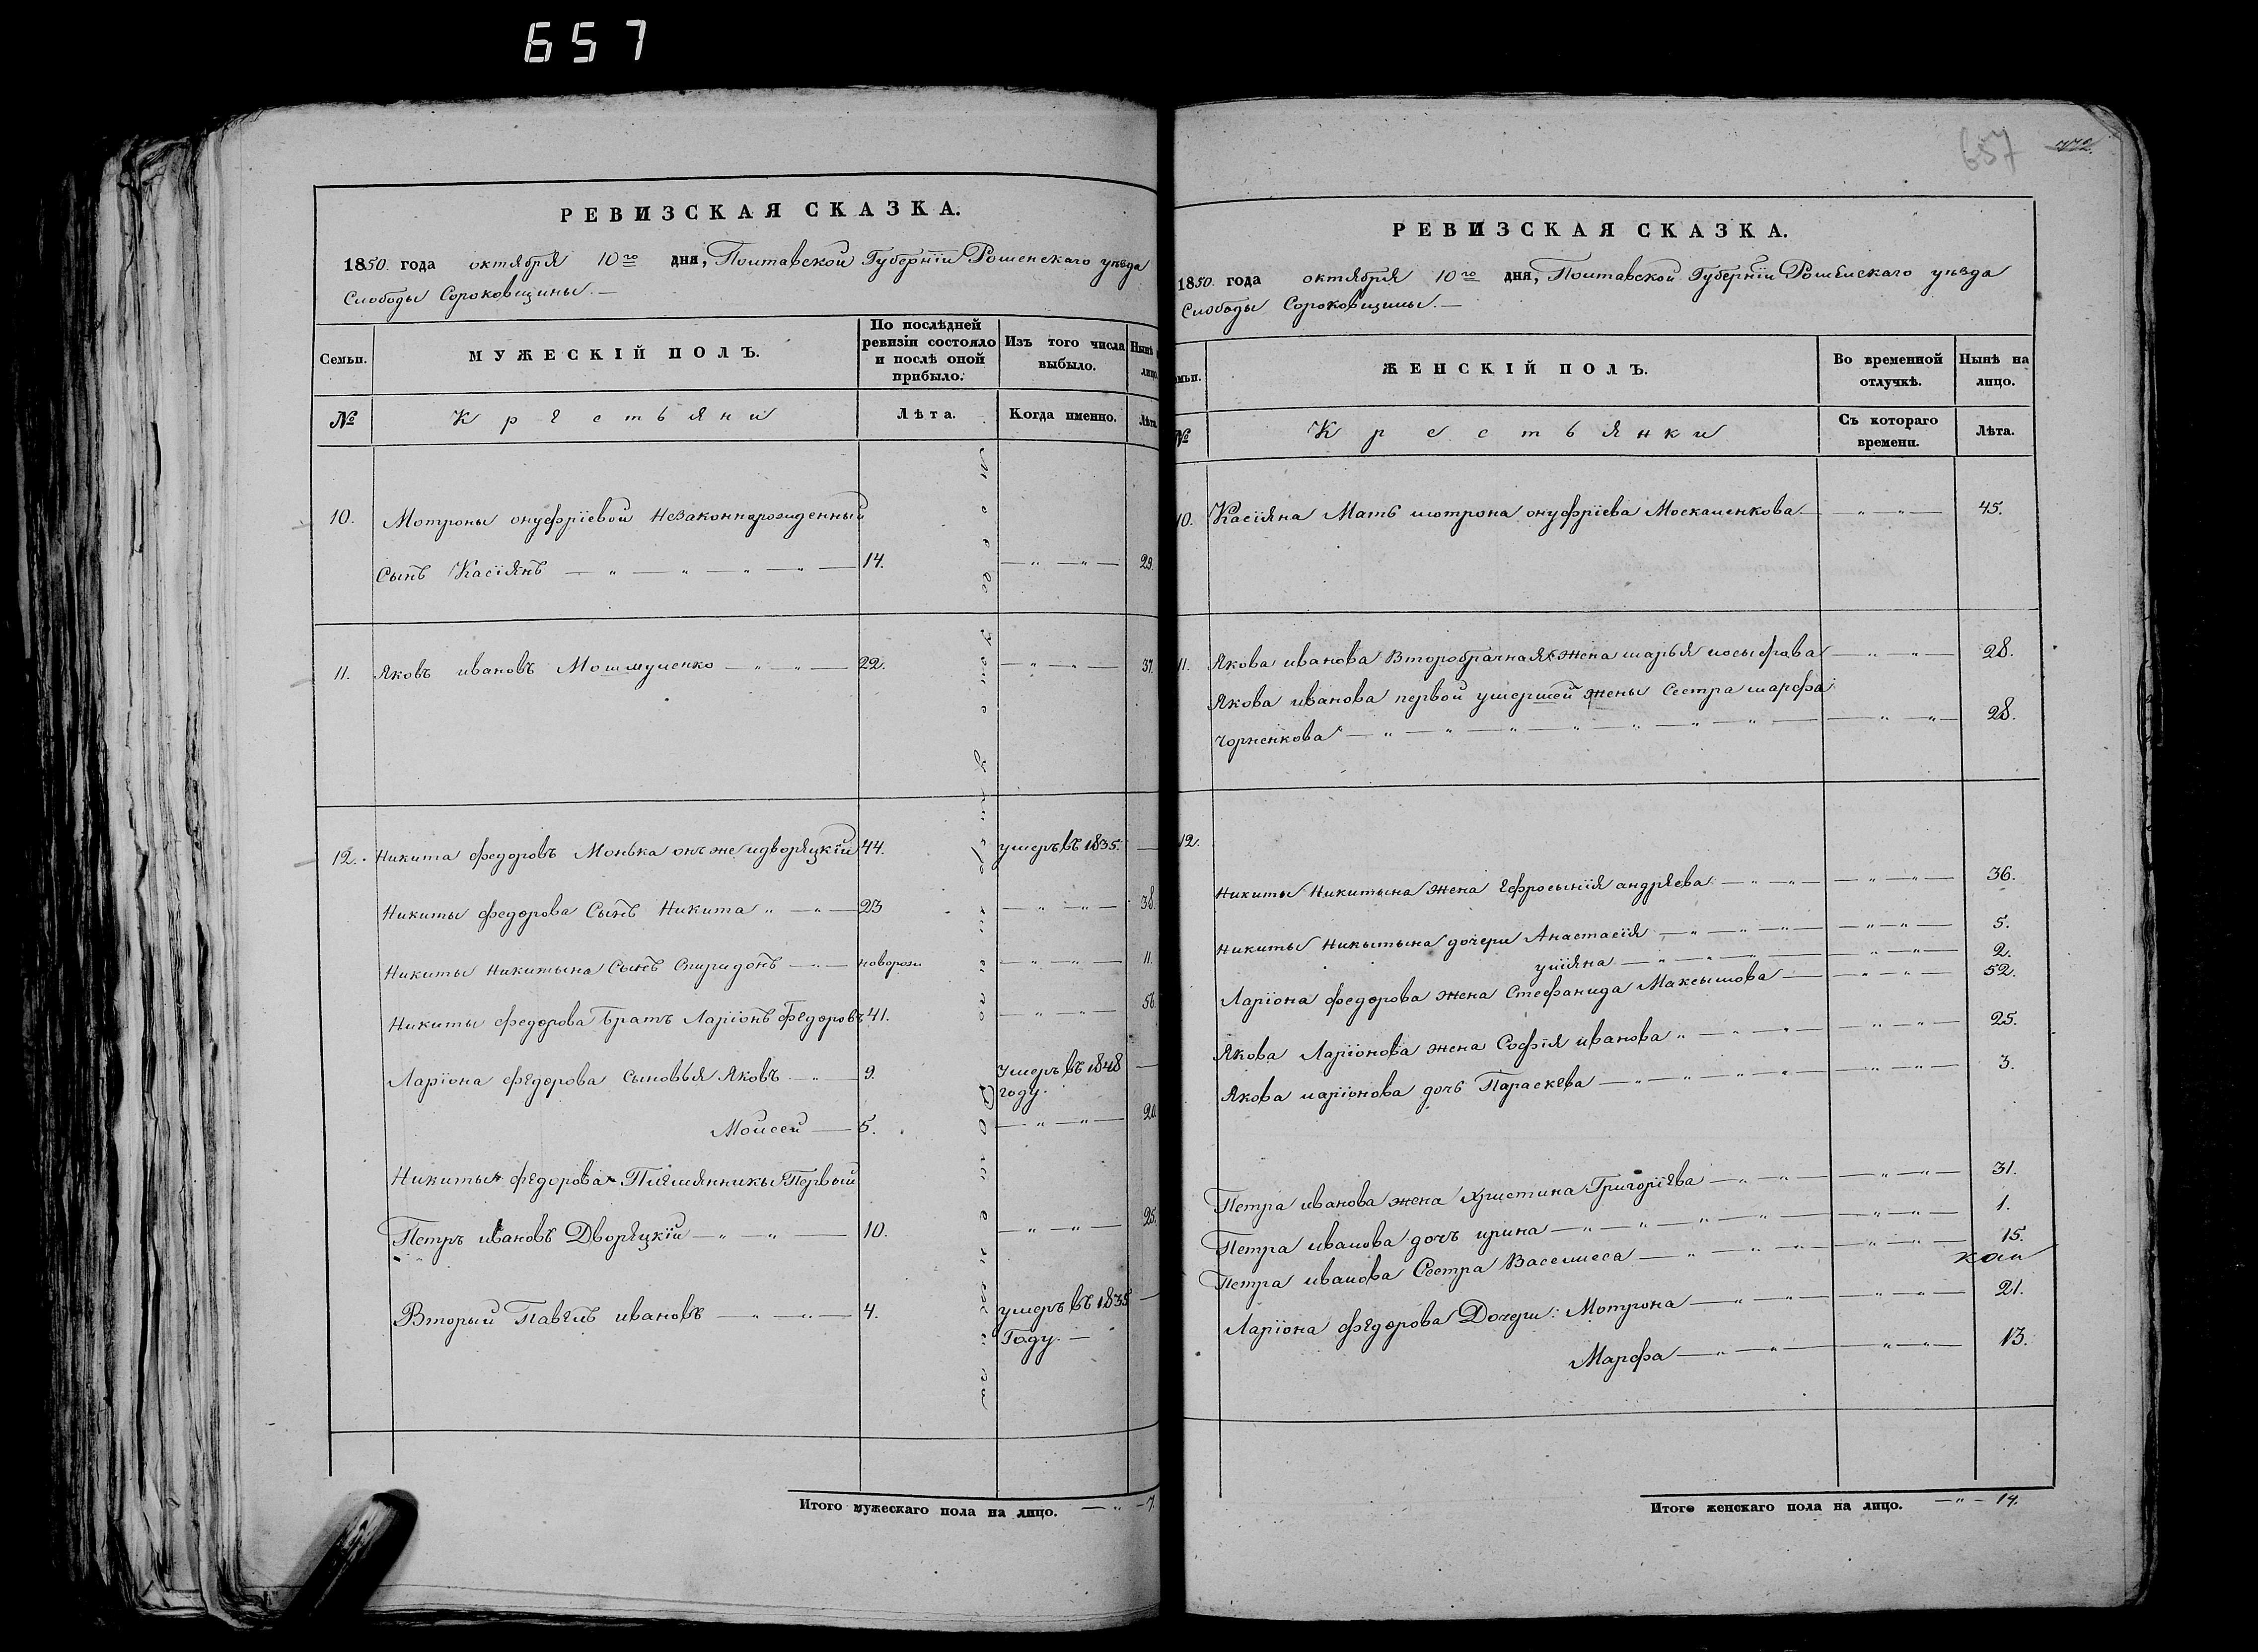 657
РЕВИЗСКАЯ СКАЗКА.
1850 года октября 10го дня, Полтавской Губернїи Роменскаго уѣзда
Слободы Сороковщины.—
Семьи.
МУЖЕСКІЙ ПОЛЪ.
По послѣдней ревизіи состояло и послѣ оной прибыло.
Изъ того числа выбыло.
Нынѣ
лицо
№
Крестьяни
Лѣта.
Когда именно.
Лѣта
10. Мотроны онуфрїевой незаконнорожденный
Сынъ Касїянъ — 14. — 29.
11. Яковъ ивановъ — 22. — 37.
12. Никита федоровъ Монька онъ же идворецкїй 44. умеръ въ 1835. —
Никиты федорова Сынъ Никита — 23 — 38.
Никиты Никитына Сынъ Спиридонъ — новорож — 11.
Никиты федорова Братъ Ларїонъ Федоровъ 41. — 56.
Ларїона федорова сыновья Яковъ — 9. Умеръ въ 1848 —
году.
Моисей — 5. — 20.
Никиты федорова Племянникы Первый
Петръ ивановъ Дворецкїй — 10. — 25.
Вторый Павелъ ивановъ — 4. умеръ въ 1835 —
Году. —
Итого мужескаго пола на лицо. — 7.
657
772.
РЕВИЗСКАЯ СКАЗКА.
1850 года октября 10го дня, Полтавской Губернїи Роменскаго уѣзда
Слободы Сороковщины.—
мьи.
ЖЕНСКІЙ ПОЛЪ.
Во временной отлучкѣ.
Нынѣ на лицо.
№
Крестьянки
Съ котораго времени.
Лѣта.
10. Касїяна Мать мотрона онуфрїева Москаленкова — 45.
11. Якова иванова Второбрачная жена марья иосыфова — 28.
Якова иванова первой умершей жены Сестра марфа
Чорненкова — 28.
12.
Никиты Никитына жена Ефросынїя андрѣева — 36.
Никиты Никытына дочери Анастасїя — 5.
улїяна — 2.
Ларїона федорова жена Стефанида Максымова — 52.
Якова Ларїонова жена Софїя иванова — 25.
Якова ларїонова дочь Параскева — 3.
Петра иванова жена христина Григорїева — 31.
Петра иванова дочь ирина — 1.
Петра иванова Сестра Василиса — 15.
Ларїона федорова Дочери: Мотрона — 21.
Марфа — 13.
Итого женскаго пола на лицо. — 14.